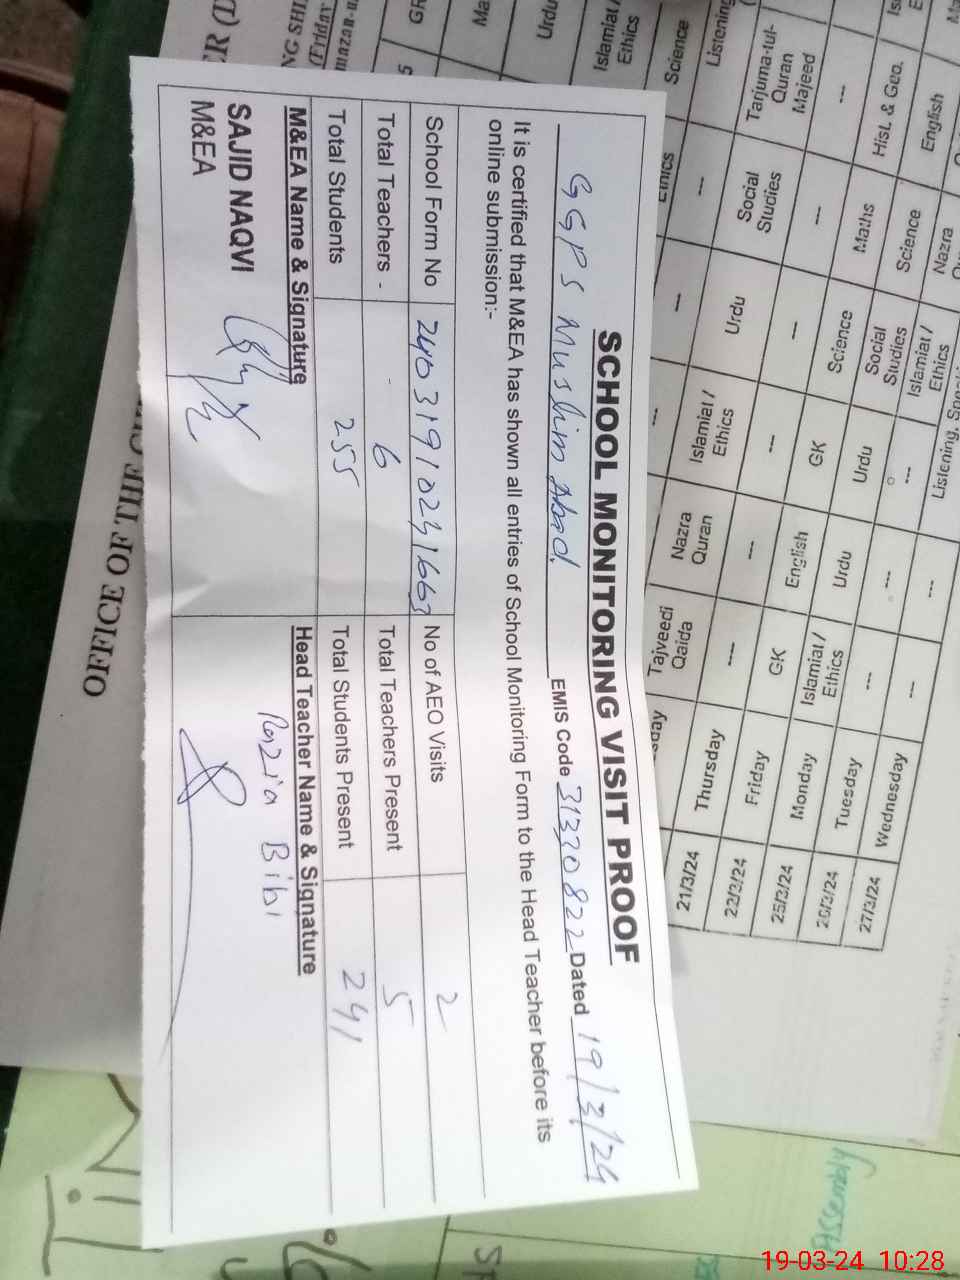 SCHOOL MONITORING VISIT PROOF
GGPS Muslim Abad. EMIS Code 31320822 Dated 19/3/24
It is certified that M&EA has shown all entries of School Monitoring Form to the Head Teacher before its
online submission:-
School Form No 24031910231663 No of AEO Visits 2
Total Teachers - 6 Total Teachers Present 5
Total Students 255 Total Students Present 241
M&EA Name & Signature Head Teacher Name & Signature
SAJID NAQVI Razia Bibi
M&EA
OFFICE OF THE
Urdu
Islamiat / Ethics
Science
Listening
Tarjuma-tul-Quran Majeed
---
Hist. & Geo.
English
Ethics
---
Social Studies
---
Maths
Science
Nazra
---
Urdu
---
Science
Social Studies
Islamiat / Ethics
---
Islamiat / Ethics
---
GK
Urdu
---
Listening,
Nazra Quran
---
English
Urdu
---
---
Tajveedi Qaida
---
GK
Islamiat / Ethics
---
---
Thursday
Friday
Monday
Tuesday
Wednesday
21/3/24
22/3/24
25/3/24
26/3/24
27/3/24
Assembly
19-03-24 10:28